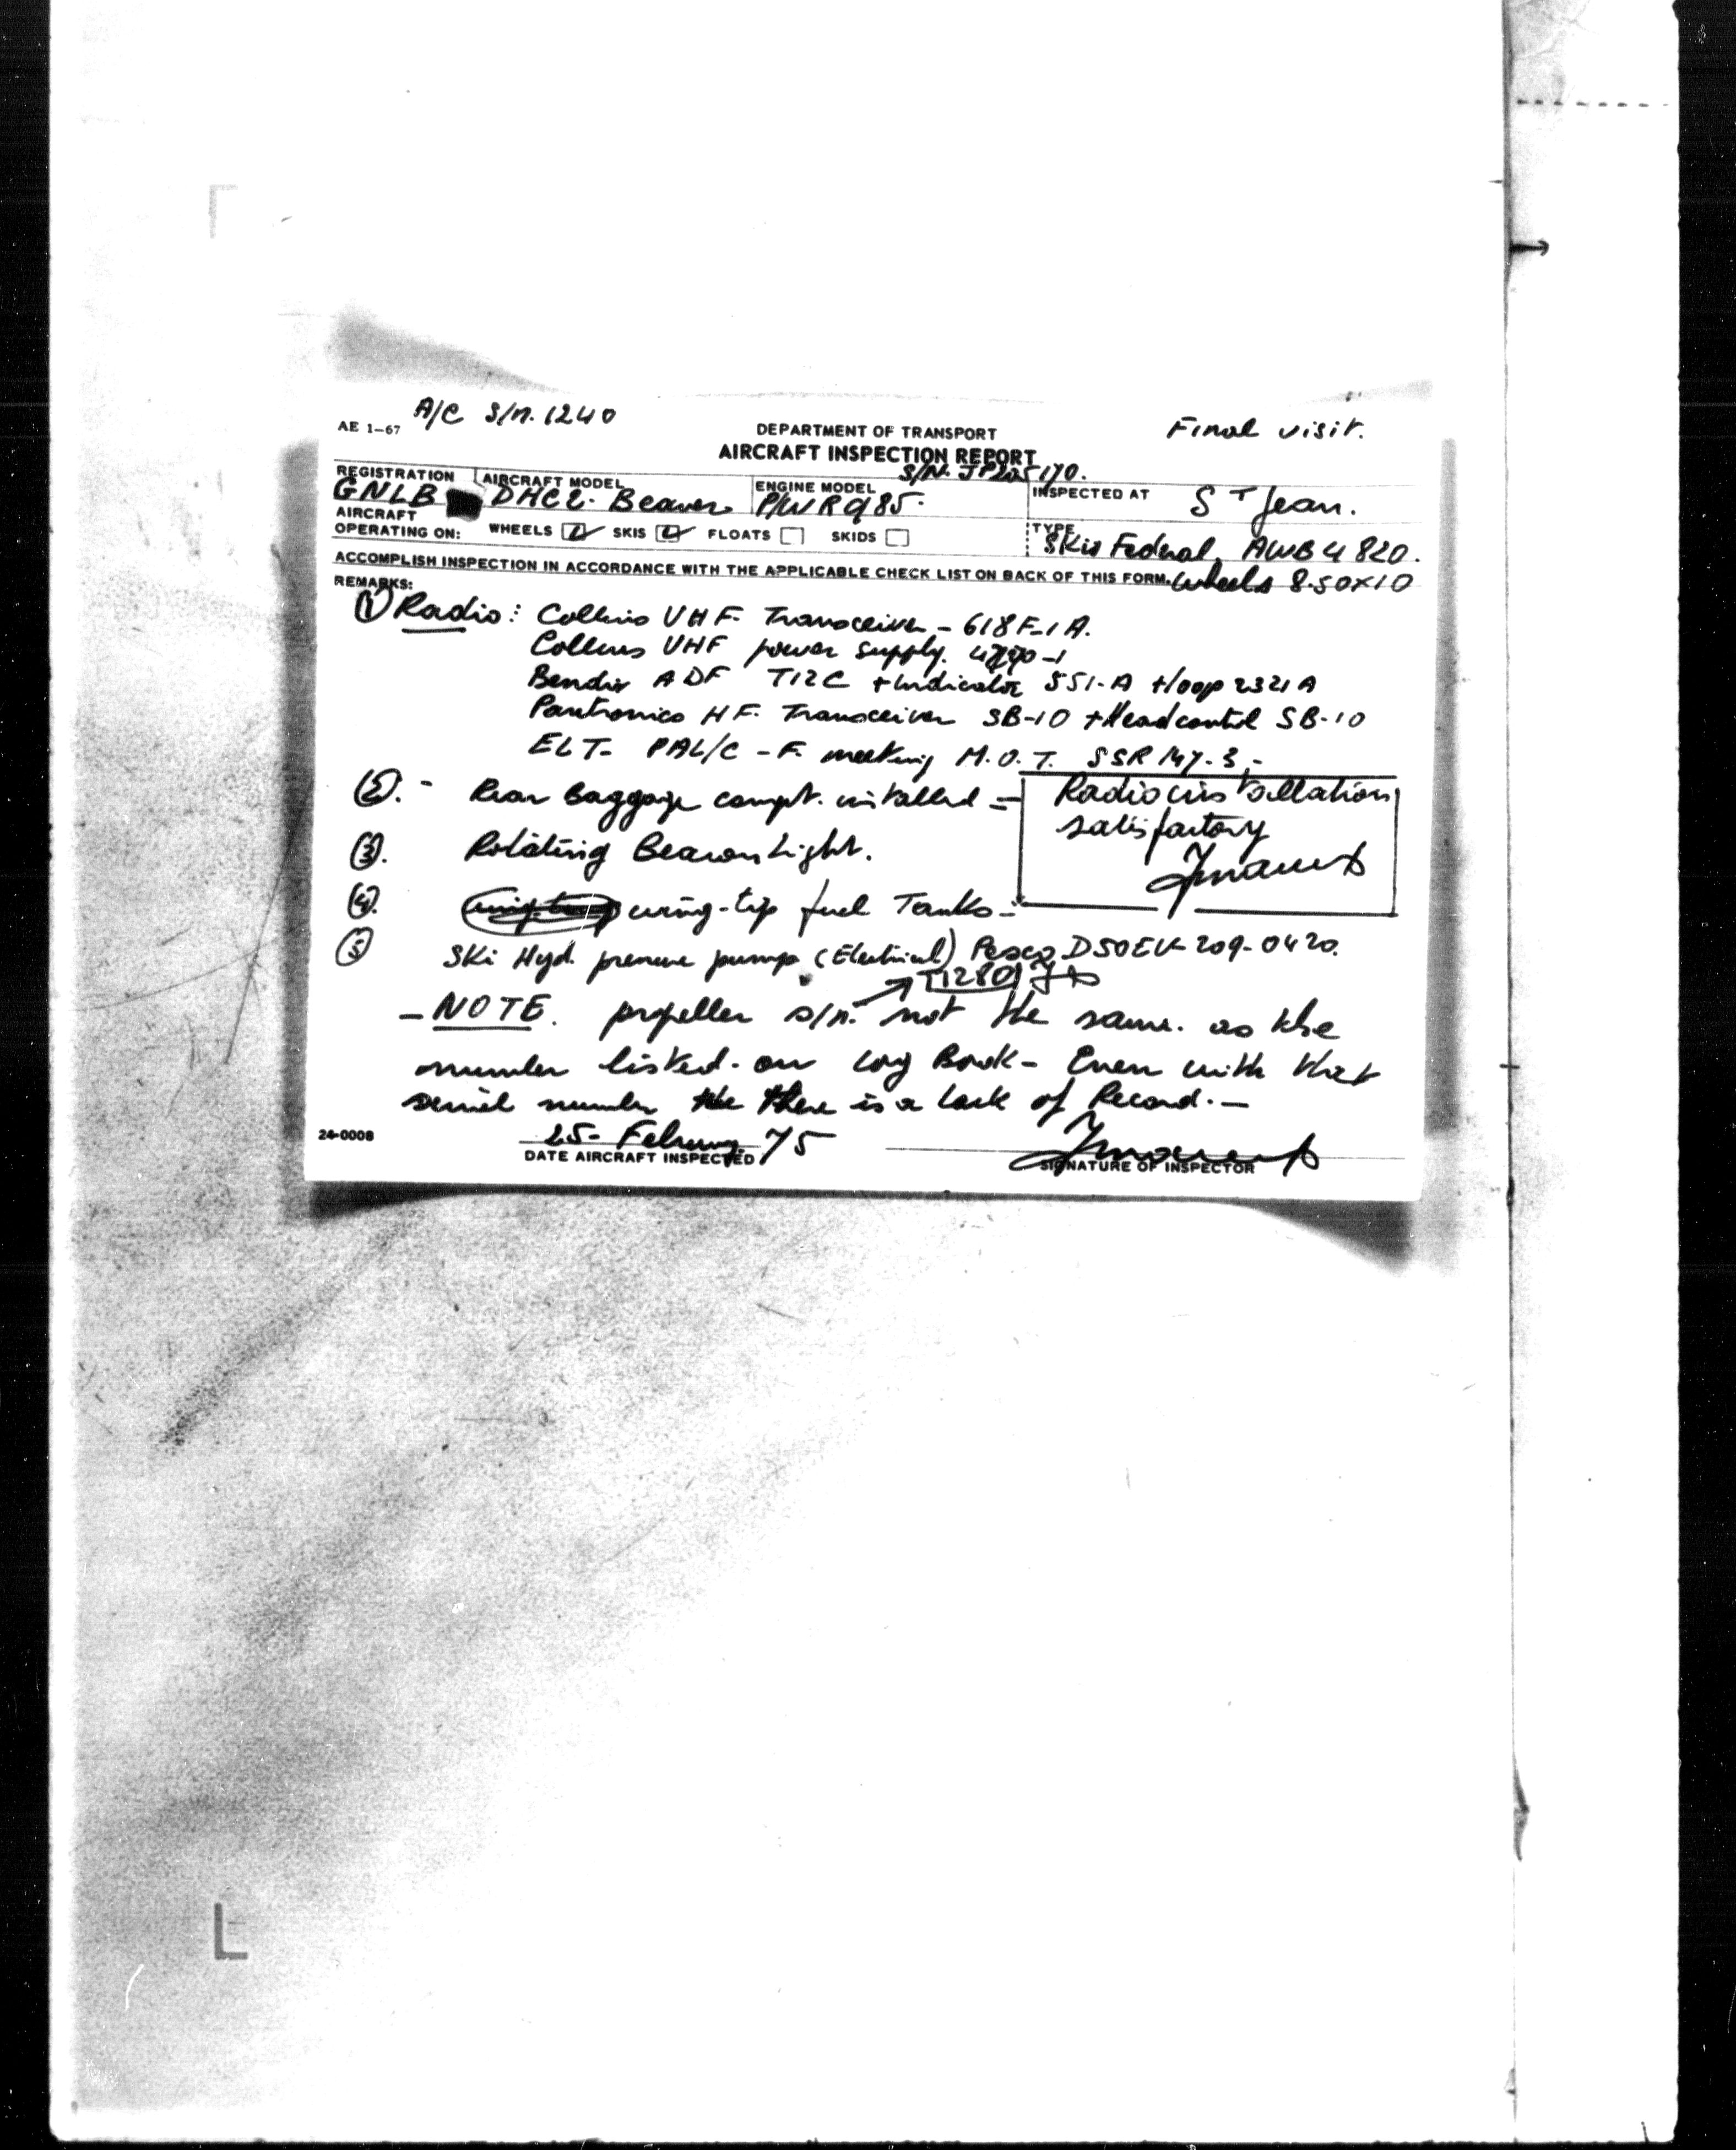 A/C S/n. 1240
AE 1-67
DEPARTMENT OF TRANSPORT
Final visit.
AIRCRAFT INSPECTION REPORT
REGISTRATION
GNLB
AIRCRAFT MODEL
DHC2. Beaver
ENGINE MODEL
P/W R985.
INSPECTED AT
St Jean.
AIRCRAFT
OPERATING ON: WHEELS SKIS FLOATS SKIDS
TYPE
Skis Federal, AWB 4820.
ACCOMPLISH INSPECTION IN ACCORDANCE WITH THE APPLICABLE CHECK LIST ON BACK OF THIS FORM. Wheels 8.50x10
REMARKS:
① Radio: Collins VHF. Transceiver - 618F-1A.
Collins VHF power supply.
Bendix ADF T12C + Indicator 551-A + loop 2321A
Pantronics HF. Transceiver SB-10 + Headcontrol SB-10
ELT- PAL/C - F. meeting M.O.T. SSR 147-3.-
②. - Rear Baggage compt. installed -
Radio installation
satisfactory
③. Rotating Beacon Light.
④. wing-tip fuel Tanks -
⑤ Ski Hyd. pressure pump (Electrical) Pesco
- NOTE. propeller s/n. not the same. as the
number listed. on Log Book - Even with that
serial number there is a lack of Record. -
24-0008
25- February. 75
DATE AIRCRAFT INSPECTED
SIGNATURE OF INSPECTOR